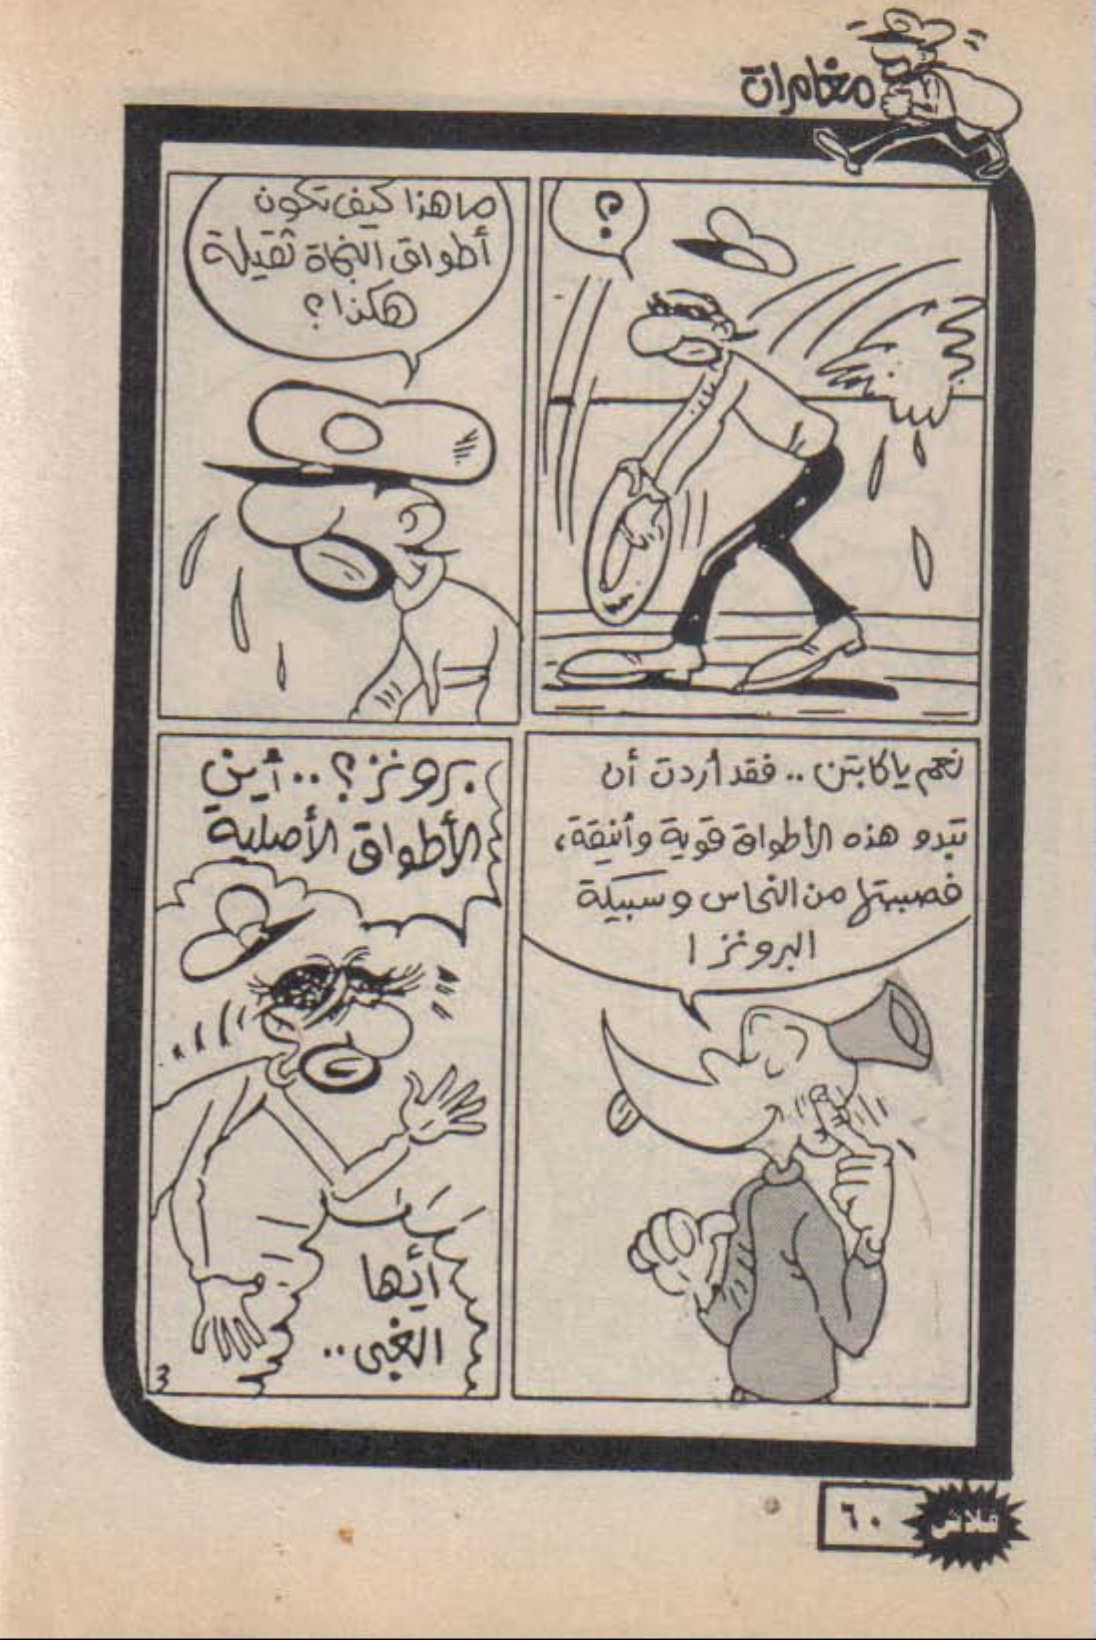 مغامرات
؟
ما هذا كيف تكون
أطواق النجاة ثقيلة
هكذا؟
نعم يا كابتن .. فقد أردت أن
تبدو هذه الأطواق قوية وأنيقة،
فصببتها من النحاس وسبيكة
البرونز !
برونز؟ .. أين
الأطواق الأصلية
أيها
الغبى ..
3
٦٠
فلاش